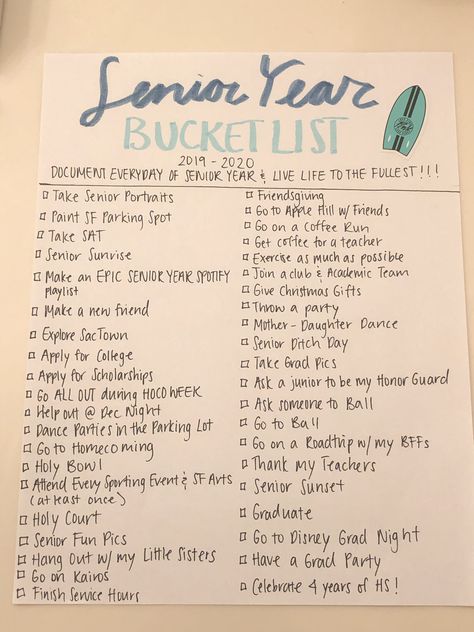 Senior Year
BUCKET LIST
2019 - 2020
DOCUMENT EVERYDAY OF SENIOR YEAR & LIVE LIFE TO THE FULLEST!!!
Take Senior Portraits
Paint SF Parking Spot
Take SAT
Senior Sunrise
Make an EPIC SENIOR YEAR SPOTIFY
playlist
Make a new friend
Explore SacTown
Apply for College
Apply for Scholarships
Go ALL OUT during HOCO WEEK
Help out @ Dec Night
Dance Parties in the Parking Lot
Go to Homecoming
Holy Bowl
Attend Every Sporting Event & SF Arts
(at least once)
Holy Court
Senior Fun Pics
Hang Out w/ my Little Sisters
Go on Kairos
Finish Service Hours
Friendsgiving
Go to Apple Hill w/ Friends
Go on a Coffee Run
Get coffee for a teacher
Exercise as much as possible
Join a club & Academic Team
Give Christmas Gifts
Throw a party
Mother-Daughter Dance
Senior Ditch Day
Take Grad Pics
Ask a junior to be my Honor Guard
Ask someone to Ball
Go to Ball
Go on a Roadtrip w/ my BFFs
Thank my Teachers
Senior Sunset
Graduate
Go to Disney Grad Night
Have a Grad Party
Celebrate 4 years of HS!